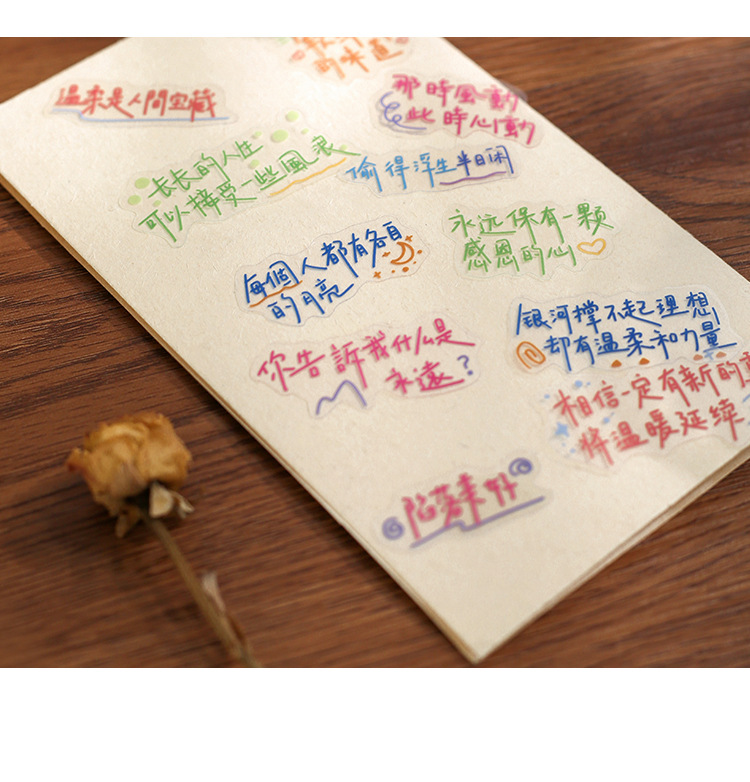 的味道
温柔是人間宝藏
那時風動
此時心動
長長的人生
可以接受一些風浪
偷得浮生半日闲
每個人都有各自
的月亮
永远保有一颗
感恩的心
银河撑不起理想
却有温柔和力量
你告訴我什么是
永遠?
相信一定有新的
将温暖延续